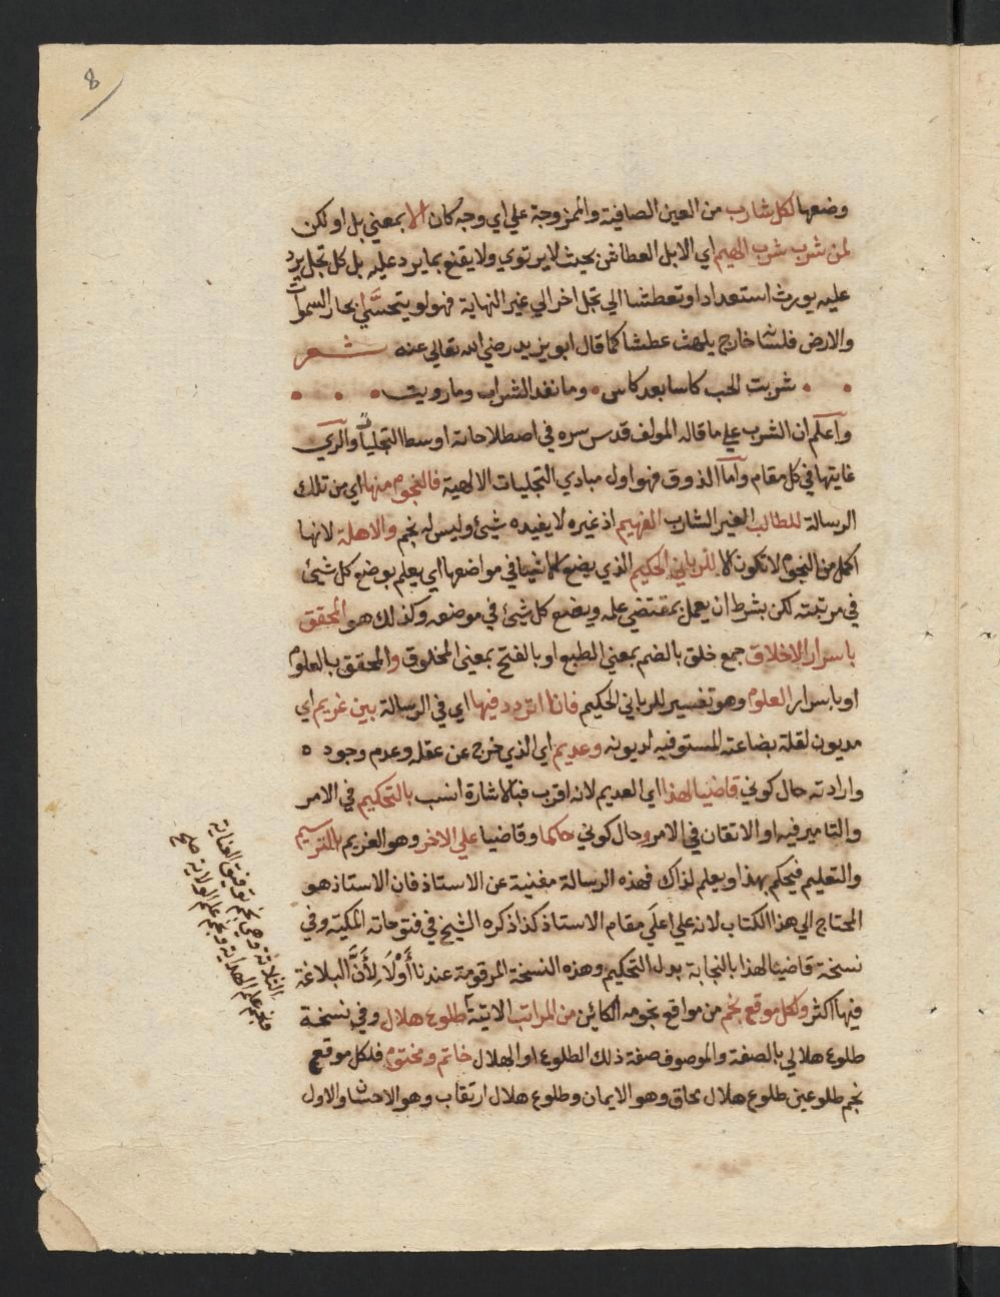 8
وضعها لكل شارب من العين الصافية والممزوجة علي اي وجه كان الا بمعني بل او لكن
لمن شرب شرب الهيم اي الابل العطاش بحيث لا يرتوي ولا يقنع بما يرد عليه بل كل تجل يرد
عليه يورث استعدادا وتعطشا الي تجل اخر الي غير النهاية فهو لو يتحسَّي بحار السموات
والارض فلسانه خارج يلهث عطشا كما قال ابو يزيد رضي الله تعالي عنه شعر
شربت الحب كاسا بعد كاس وما نفد الشراب وما رويت
واعلم ان الشرب علي ما قاله المولف قدس سره في اصطلاحاته اوسط التجليات والري
غايتها في كل مقام واما الذوق فهو اول مبادي التجليات الالهية فالنجوم منها اي من تلك
الرسالة للطالب الغير الشارب الفهيم اذ غيره لا يفيده شيئ وليس له نجم والاهلة لانها
اكمل من النجوم لا تكون الا للرباني الحكيم الذي يضع الاشيا في مواضعها اي يعلم بوضع كل شيئ
في مرتبته لكن بشرط ان يعمل بمقتضي علمه ويضع كل شيئ في موضعه وكذلك هو المحقق
باسرار الاخلاق جمع خلق بالضم بمعني الطبع او بالفتح بمعني المخلوق والمحقق بالعلوم
او باسرار العلوم وهو تفسير للرباني الحكيم فانا اتردد فيها اي في الرسالة بين غريم اي
مديون لقلة بضاعته المستوفيه لديونه وعديم اي الذي خرج عن عقله وعدم وجوده
وارادته حال كوني قاضيا لهذا اي العديم لانه اقرب فبالاشارة انسب بالتحكيم في الامر
والتامير فيه او الاتقان في الامر وحال كوني حاكما وقاضيا علي الاخر وهو الغريم بالترسيم
والتعليم فيحكم بهذا ويعلم لذاك فهذه الرسالة مغنية عن الاستاذ فان الاستاذ هو
المحتاج الي هذا الكتاب لانه علي اعلَي مقام الاستاذ كذا ذكره الشيخ في فتوحاته المكية وفي
نسخة قاضيا لهذا بالنجابة بدل التحكيم وهذه النسخة المرقومة عندنا أَوْلَا لِأَنَّ البلاغة
فيها اكثر ولكل موقع نجم من مواقع نجومه الكائن من المراتب الاتية طلوع هلال وفي نسخة
طلوع هلالي بالصفة والموصوف صفة ذلك الطلوع او الهلال خاتم ومختوم فلكل موقع
نجم طلوعين طلوع هلال محاق وهو الايمان وطلوع هلال ارتقاب وهو الاحسان والاول
الثلاثة وهي نجم توفيق العناية
فنجم علم الهداية ونجم علم الولاية صح